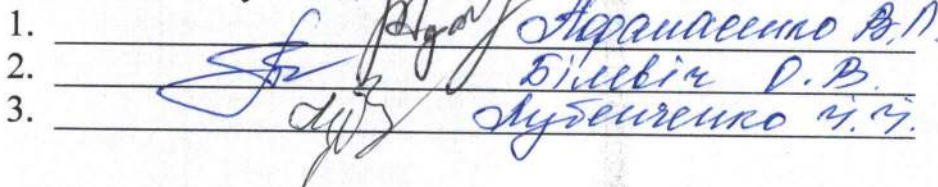 1. Афанасенко В.П.
2. Білевіч О.В.
3. Лубенченко